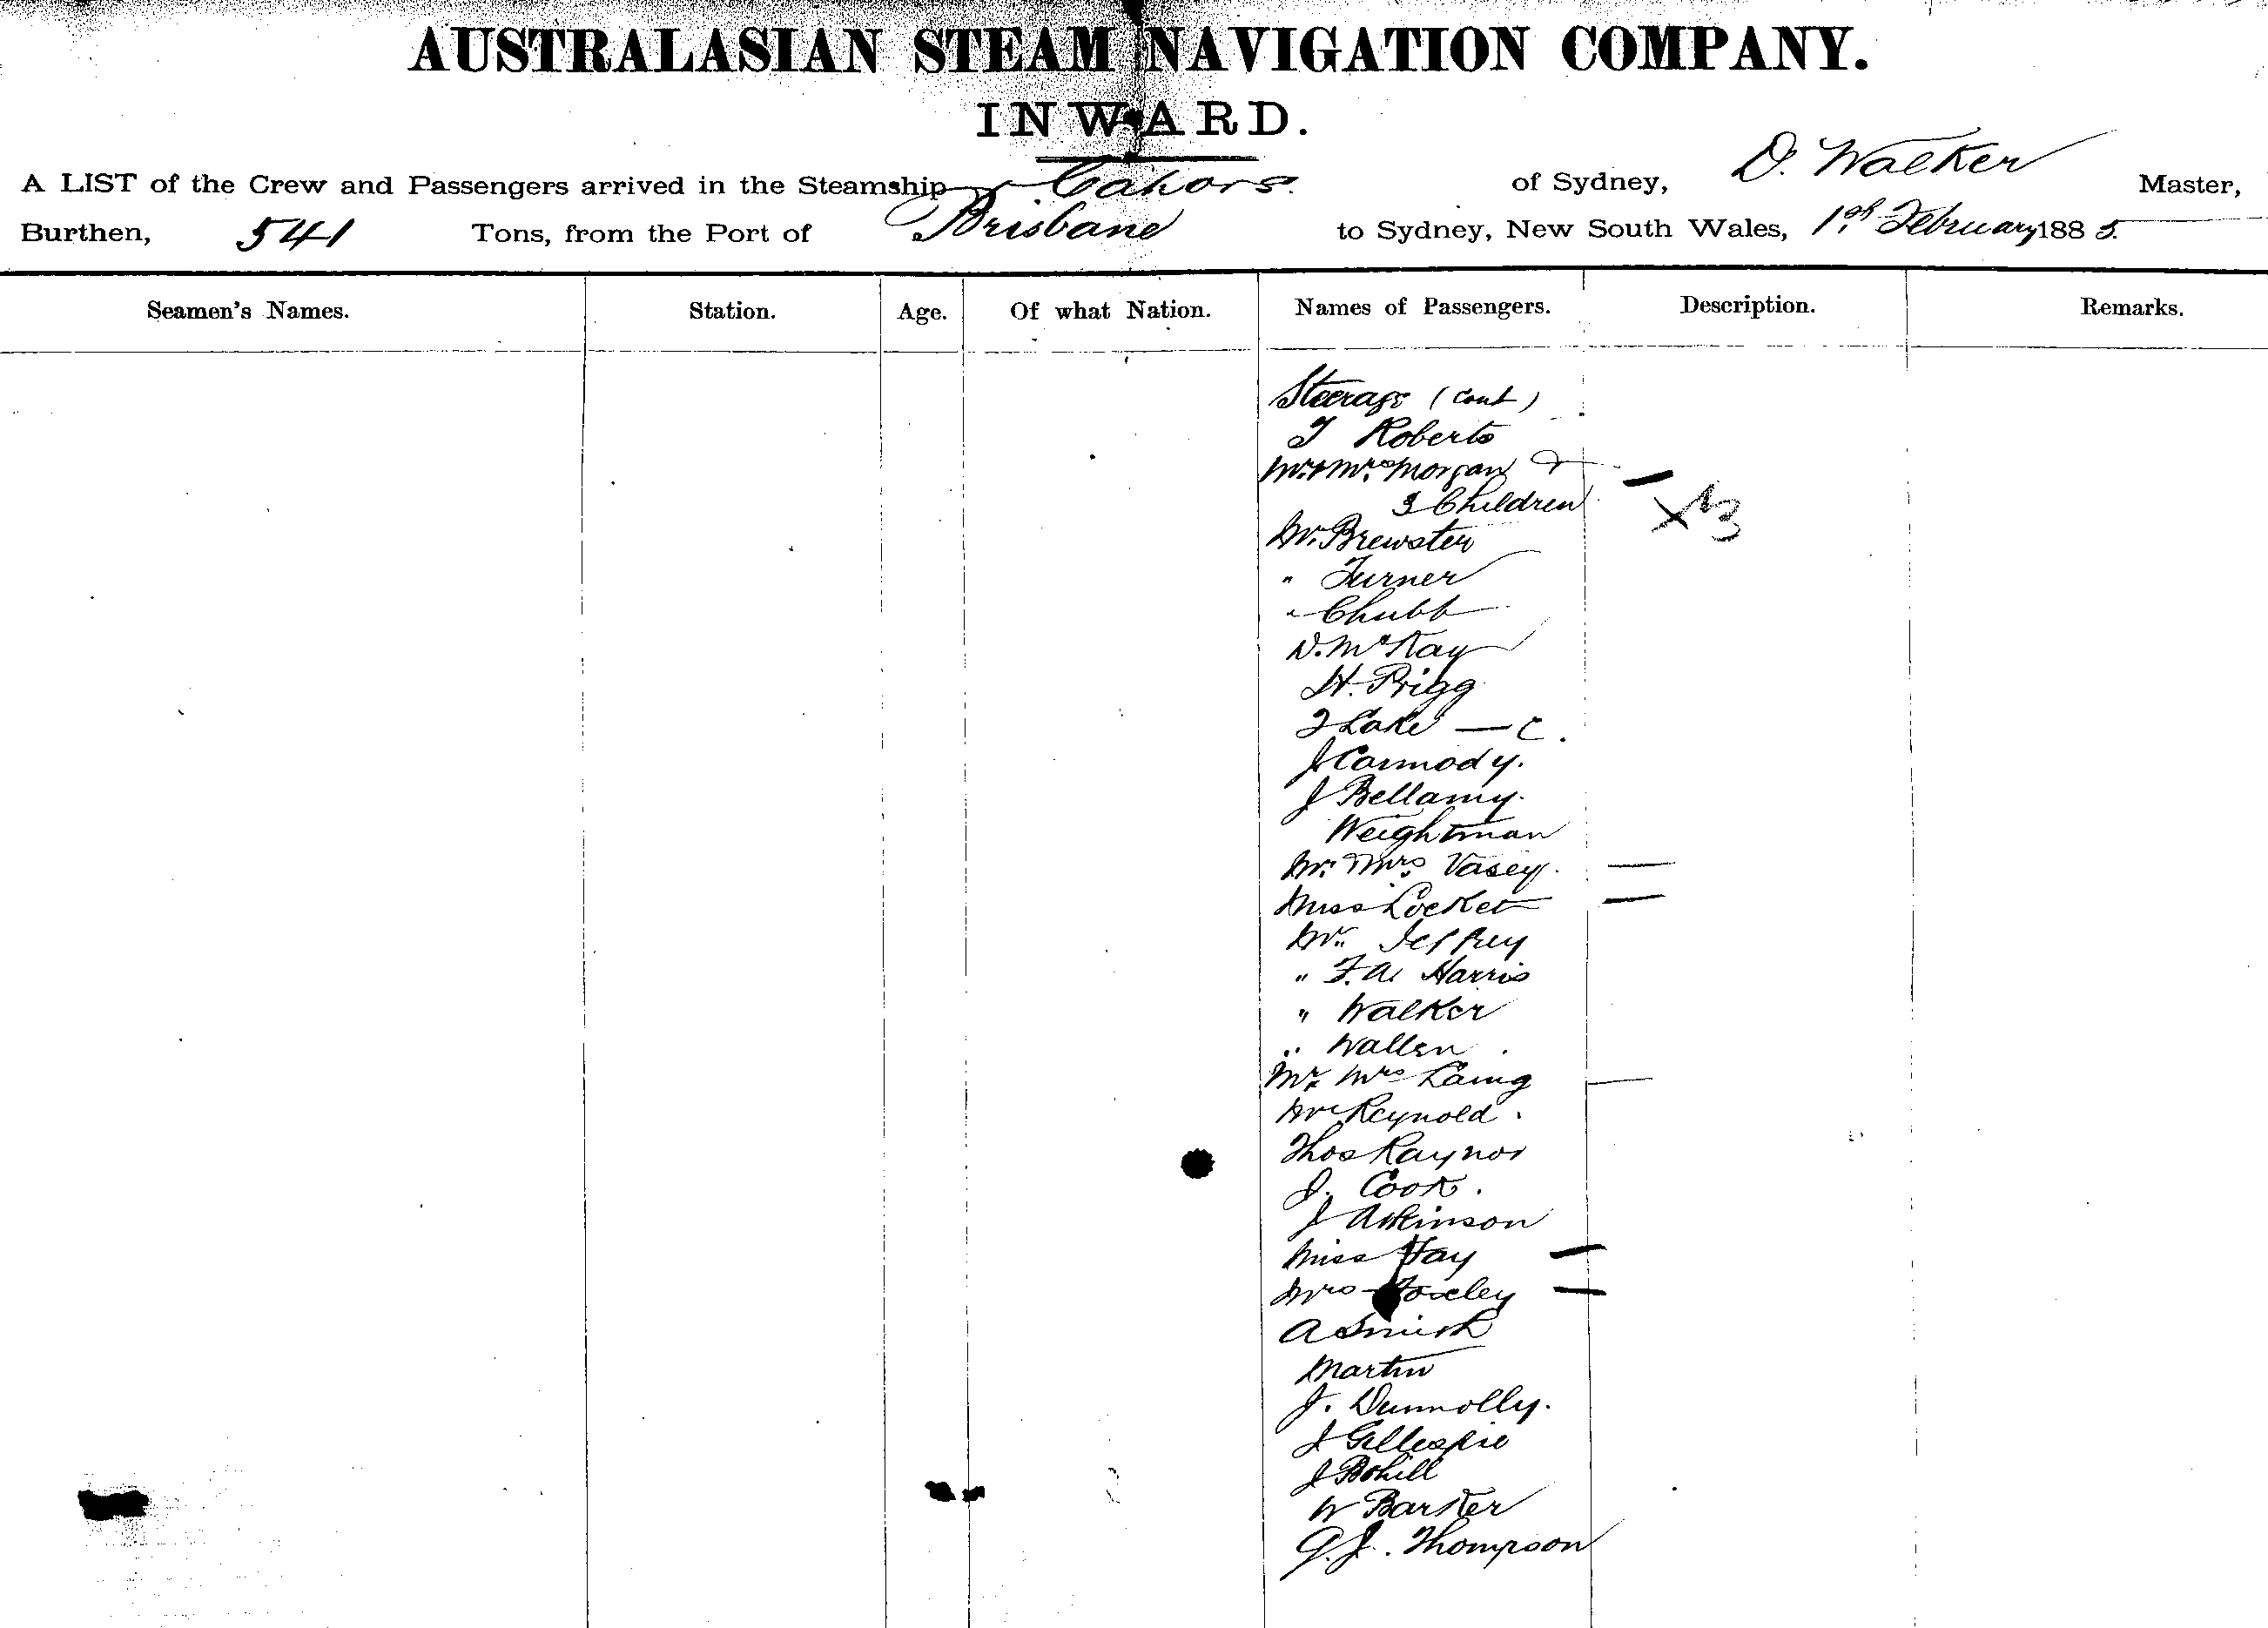 AUSTRALASIAN STEAM NAVIGATION COMPANY.
INWARD.
A LIST of the Crew and Passengers arrived in the Steamship Cahors. of Sydney, D. Walker Master,
Burthen, 541 Tons, from the Port of Brisbane to Sydney, New South Wales, 1st February 1885.
Seamen's Names. Station. Age. Of what Nation. Names of Passengers. Description. Remarks.
Steerage (Cont)
T Roberts
Mr & Mrs Morgan &
3 Children
Mr. Brewster
" Turner
" Chubb
D. McKay
H. Prigg
Lake — C.
J Carmody.
J Bellamy.
Weightman
Mr. Mrs. Vasey.
Miss Locket
Mr. Jeffrey
" F. A. Harris
" Walker
" Wallen
Mr Mrs Laing
Mr Reynold.
Thos Raynor
J. Cook.
J Atkinson
Miss Hay
Mrs
A Smith
Martin
J. Dunnolly.
J Gillespie
J Bohill
W Barker
G. J. Thompson